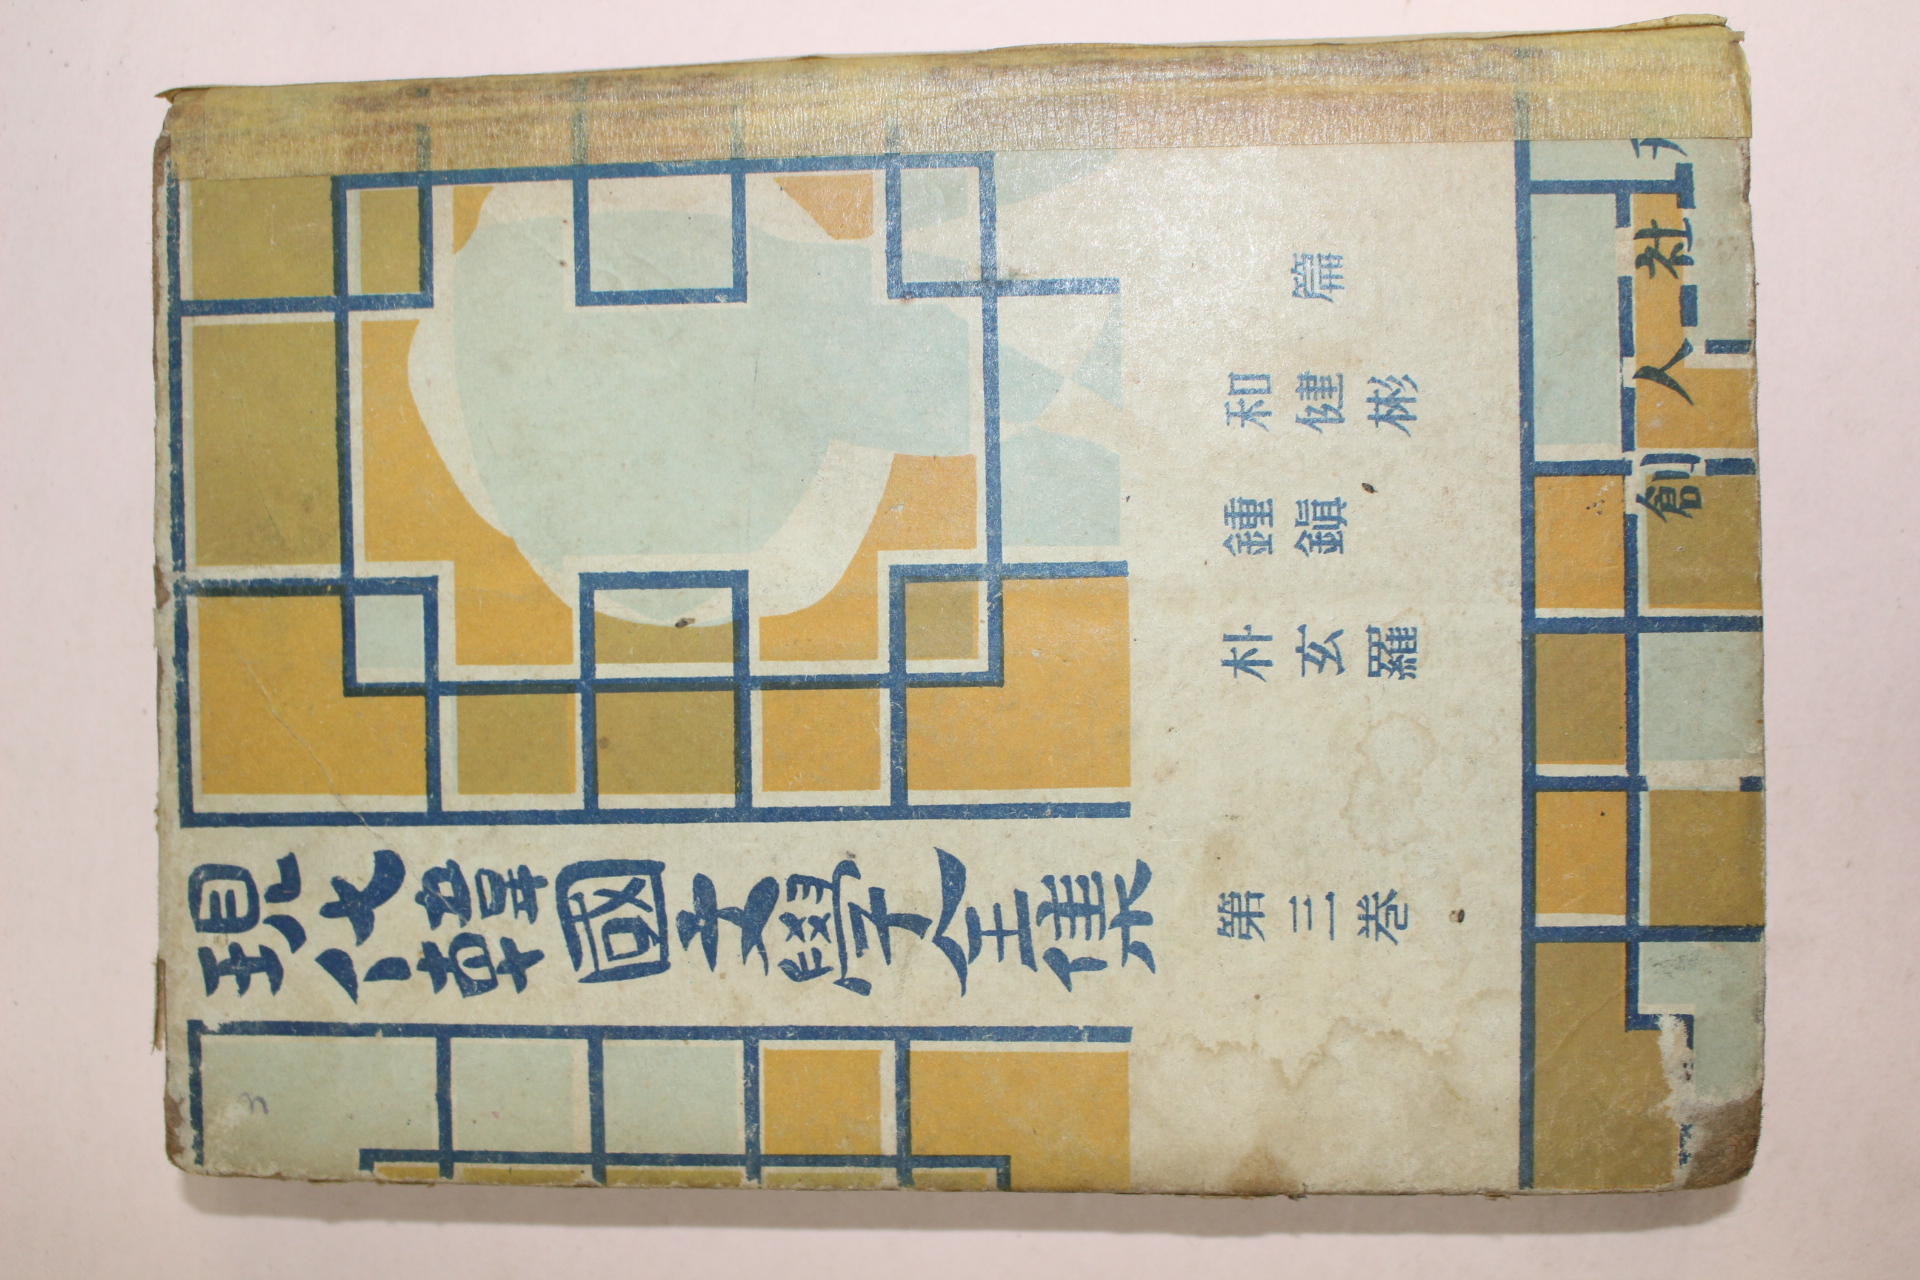 現代韓國文學全集
第三卷
朴鍾和
玄鎭健 篇
羅彬
創人社